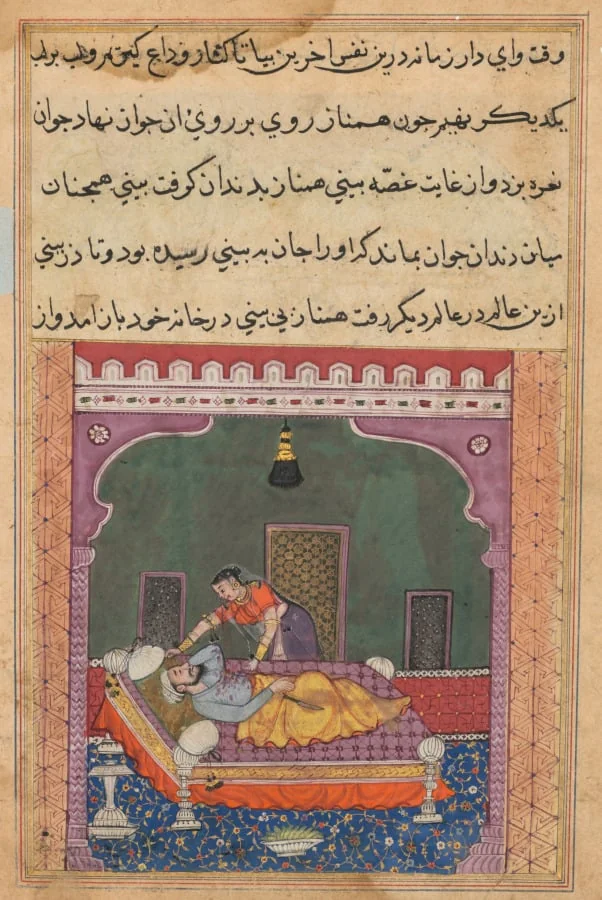 وقت واي دار زمانه درين نفس اخرين بيا تا كنار وداع كيريم و لب بر لب
يكديكر نهيم چون همناز روي بر روي ان جوان نهاد جوان
نعره بزد و از غايت غصّه بيني همناز بدندان كرفت بيني همچنان
ميان دندان جوان بماند كه او را جان به بيني رسيده بود و تا در بيني
ازين عالم در عالم ديكر رفت همناز بي بيني در خانه خود باز امد و از